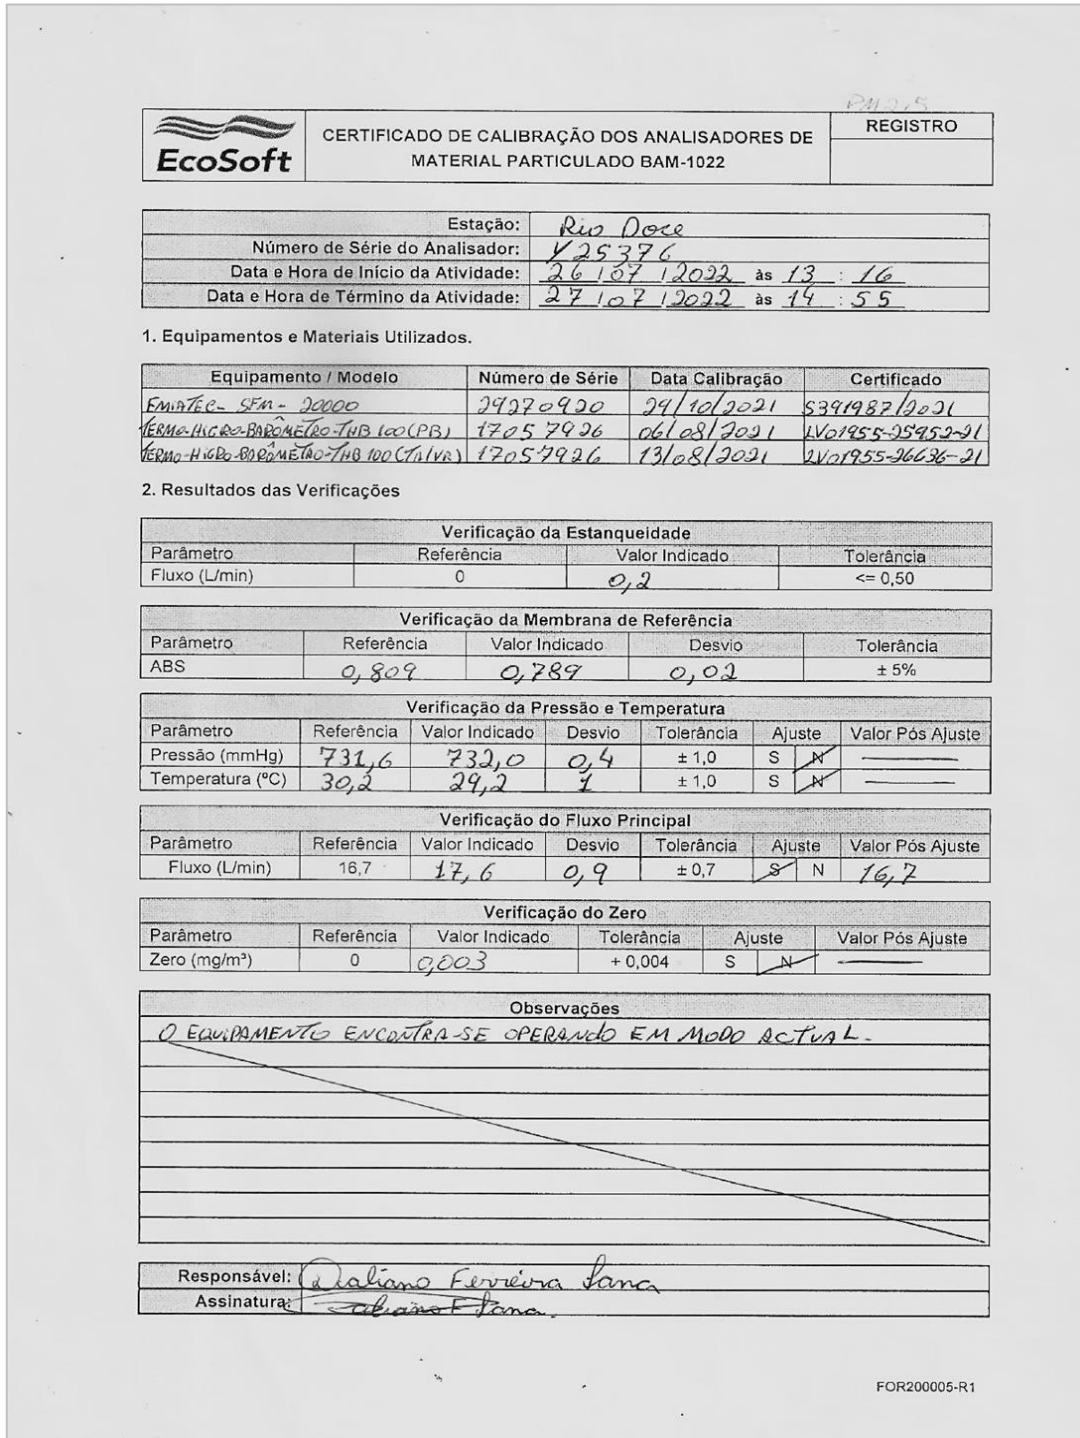 PM2,5
EcoSoft
CERTIFICADO DE CALIBRAÇÃO DOS ANALISADORES DE
MATERIAL PARTICULADO BAM-1022
REGISTRO
Estação: Rio Doce
Número de Série do Analisador: Y25376
Data e Hora de Início da Atividade: 26/07/2022 às 13:16
Data e Hora de Término da Atividade: 27/07/2022 às 14:55
1. Equipamentos e Materiais Utilizados.
Equipamento / Modelo Número de Série Data Calibração Certificado
SFM-20000 29270920 29/10/2021 S391987/2021
TERMO-HIGRO-BARÔMETRO-THB 100 (PB) 17057926 06/08/2021 LV01955-25952-21
TERMO-HIGRO-BARÔMETRO-THB 100 (TA/VR) 17057926 13/08/2021 LV01955-26636-21
2. Resultados das Verificações
Verificação da Estanqueidade
Parâmetro Referência Valor Indicado Tolerância
Fluxo (L/min) 0 0,2 <= 0,50
Verificação da Membrana de Referência
Parâmetro Referência Valor Indicado Desvio Tolerância
ABS 0,809 0,789 0,02 ± 5%
Verificação da Pressão e Temperatura
Parâmetro Referência Valor Indicado Desvio Tolerância Ajuste Valor Pós Ajuste
Pressão (mmHg) 731,6 732,0 0,4 ± 1,0 S N
Temperatura (ºC) 30,2 29,2 1 ± 1,0 S N
Verificação do Fluxo Principal
Parâmetro Referência Valor Indicado Desvio Tolerância Ajuste Valor Pós Ajuste
Fluxo (L/min) 16,7 17,6 0,9 ± 0,7 S N 16,7
Verificação do Zero
Parâmetro Referência Valor Indicado Tolerância Ajuste Valor Pós Ajuste
Zero (mg/m³) 0 0,003 + 0,004 S N
Observações
O EQUIPAMENTO ENCONTRA-SE OPERANDO EM MODO ACTUAL.
Responsável: Ferreira Sana
Assinatura: Sana
FOR200005-R1